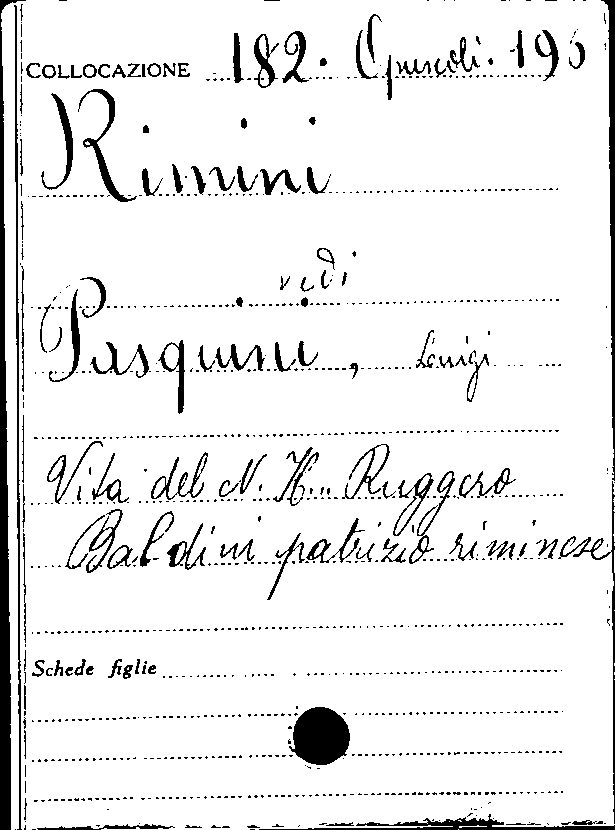 COLLOCAZIONE 182. Opuscoli. 195
Rimini
vedi
Pasquini, Luigi
Vita del N. H.. Ruggero
Baldini patrizio riminese
Schede figlie